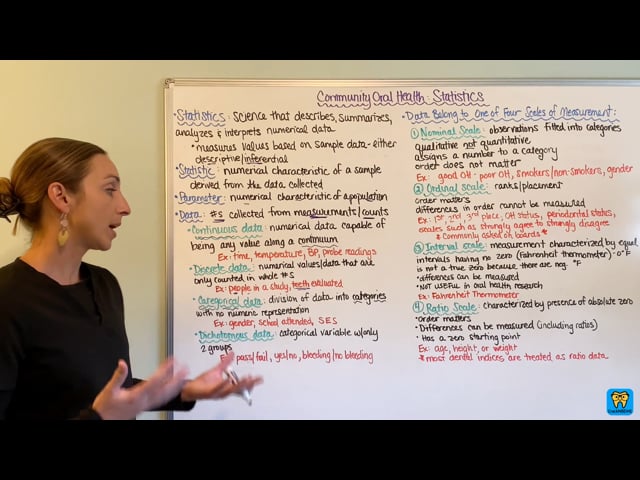 Community Oral Health: Statistics
• Statistics: science that describes, summarizes,
analyzes & interprets numerical data
• measures values based on sample data - either
descriptive/inferential
• Statistic: numerical characteristic of a sample
derived from the data collected
• Parameter: numerical characteristic of a population
• Data: #s collected from measurements/counts
• Continuous data: numerical data capable of
being any value along a continuum
Ex: time, temperature, BP, probe readings
• Discrete data: numerical values/data that are
only counted in whole #s
Ex: people in a study, teeth evaluated
• Categorical data: division of data into categories
with no numeric representation
Ex: gender, school attended, SES
• Dichotomous data: categorical variable w/only
2 groups
pass/fail, yes/no, bleeding/no bleeding
• Data Belong to One of Four Scales of Measurement:
① Nominal Scale: observations fitted into categories
qualitative not quantitative
assigns a number to a category
order does not matter
Ex: good OH - poor OH, smokers/non-smokers, gender
② Ordinal Scale: ranks/placement
order matters
differences in order cannot be measured
Ex: 1st, 2nd, 3rd place, OH status, periodontal status,
scales such as strongly agree to strongly disagree
* Commonly asked on boards *
③ Interval Scale: measurement characterized by equal
intervals having no zero (Fahrenheit thermometer) - 0°F
is not a true zero because there are neg. °F
• order matters
• differences can be measured
• NOT USEFUL in oral health research
Ex: Fahrenheit Thermometer
④ Ratio Scale: characterized by presence of absolute zero
• Order matters
• Differences can be measured (including ratios)
• Has a zero starting point
Ex: age, height, or weight
* most dental indices are treated as ratio data